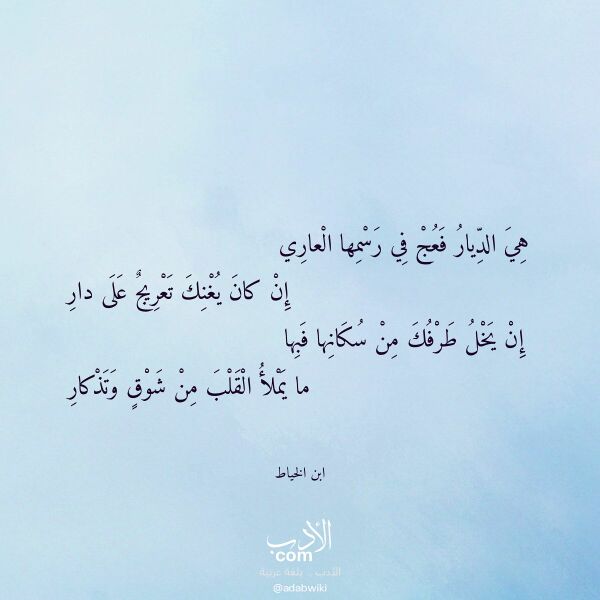 هِيَ الدِّيارُ فَعُجْ فِي رَسْمِها الْعارِي
إِنْ كانَ يُغْنِكَ تَعْرِيجٌ عَلَى دارِ
إِنْ يَخْلُ طَرْفُكَ مِنْ سُكَانِها فَبِها
ما يَمْلأُ الْقَلْبَ مِنْ شَوْقٍ وَتَذْكارِ
ابن الخياط
الأدب
com
الأدب .. بلغة عربية
@adabwiki